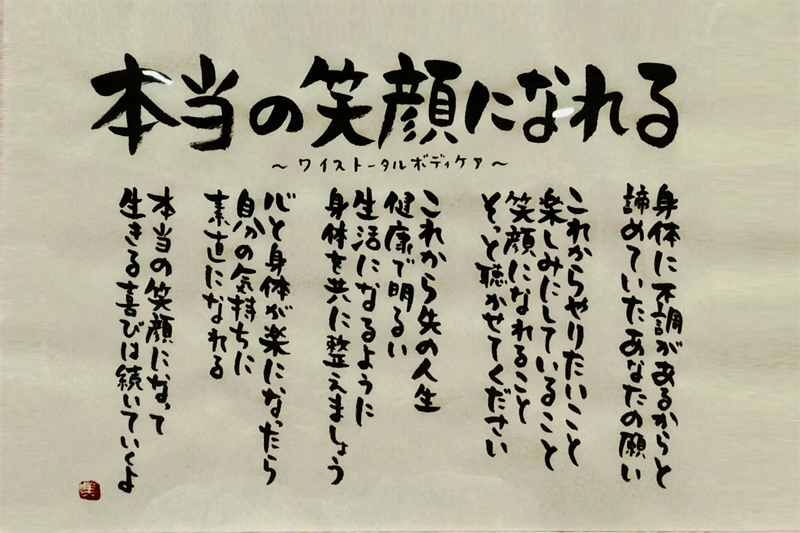 本当の笑顔になれる
～ワイズトータルボディケア～
身体に不調があるからと
諦めていたあなたの願い
これからやりたいこと
楽しみにしていること
笑顔になれること
そっと聴かせてください
これから先の人生
健康で明るい
生活になるように
身体を共に整えましょう
心と身体が楽になったら
自分の気持ちに
素直になれる
本当の笑顔になって
生きる喜びは続いていくよ